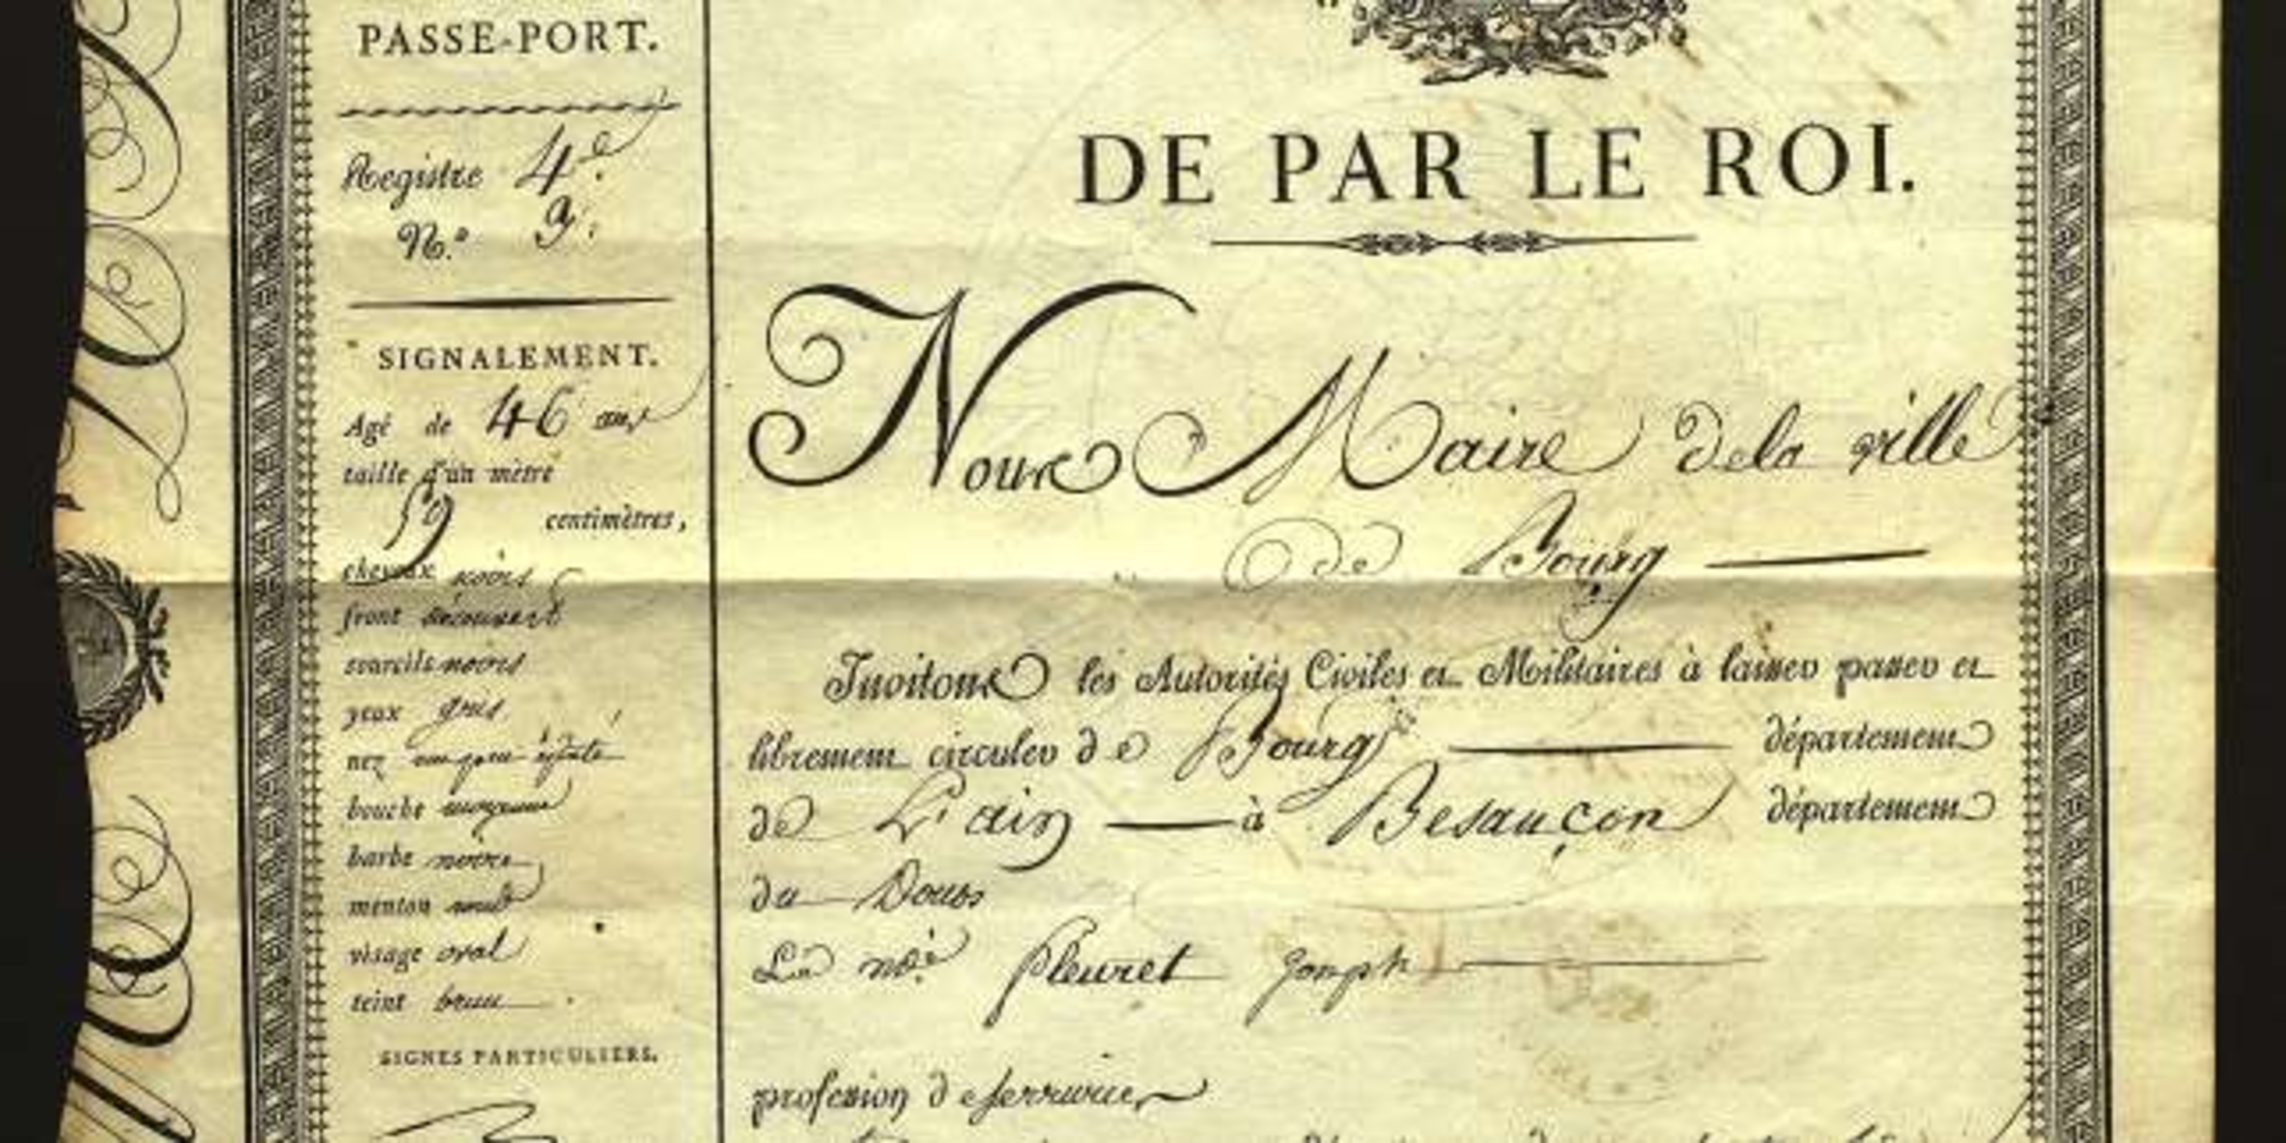 PASSE-PORT.
Registre 4e.
N.° 9.
SIGNALEMENT.
Agé de 46 ans
taille d'un mètre
59 centimètres,
cheveux noirs
front découvert
sourcils noirs
yeux gris
nez un peu épaté
bouche moyenne
barbe noire
menton rond
visage oval
teint brun
SIGNES PARTICULIERS.
DE PAR LE ROI.
Nous Maire de la ville
de Bourg
Invitons les Autorités Civiles et Militaires à laisser passer et
librement circuler de Bourg département
de L'ain à Besançon département
du Doubs
Le né. pleuret Joseph
profession de serrurier